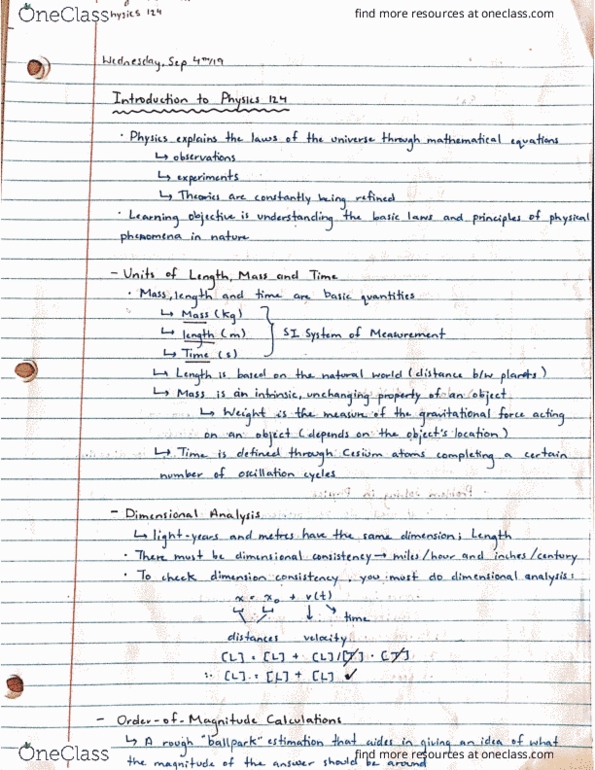 OneClass find more resources at oneclass.com
Physics 124
Wednesday, Sep 4th/19
Introduction to Physics 124
· Physics explains the laws of the universe through mathematical equations
↳ observations
↳ experiments
↳ Theories are constantly being refined
· Learning objective is understanding the basic laws and principles of physical
phenomena in nature
- Units of Length, Mass and Time
· Mass, length and time are basic quantities
↳ Mass (kg)
↳ length (m) } SI System of Measurement
↳ Time (s)
↳ Length is based on the natural world (distance b/w planets)
↳ Mass is an intrinsic, unchanging property of an object
↳ Weight is the measure of the gravitational force acting
on an object (depends on the object's location)
↳ Time is defined through Cesium atoms completing a certain
number of oscillation cycles
- Dimensional Analysis
↳ light-years and metres have the same dimension; Length
· There must be dimensional consistency → miles/hour and inches/century
· To check dimension consistency, you must do dimensional analysis:
x = x₀ + v(t)
time
distances velocity
[L] = [L] + [L]/[T] · [T]
∴ [L] = [L] + [L] ✓
- Order-of-Magnitude Calculations
↳ A rough "ballpark" estimation that aides in giving an idea of what
the magnitude of the answer should be around
OneClass find more resources at oneclass.com